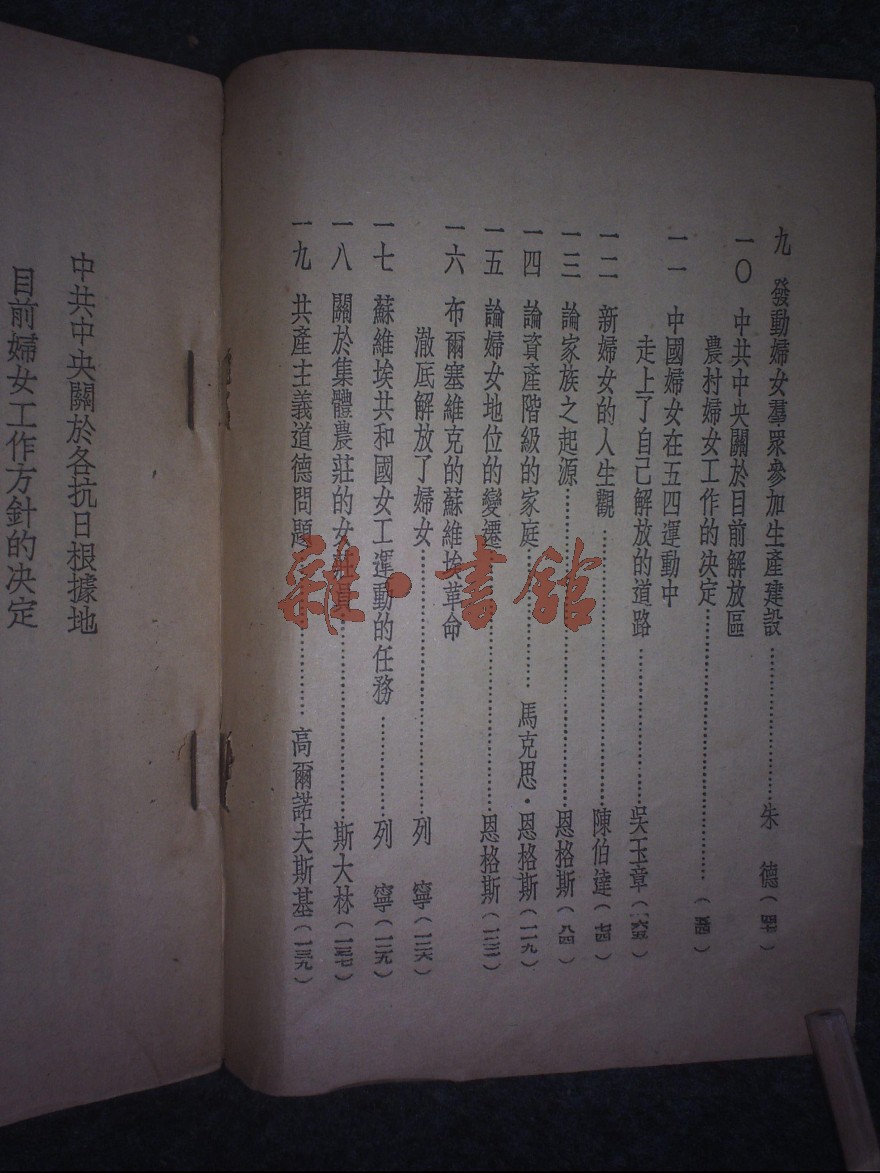 九 發動婦女羣眾參加生產建設……………………朱 德(四七)
一〇 中共中央關於目前解放區
農村婦女工作的決定……………………(五四)
一一 中國婦女在五四運動中
走上了自己解放的道路……………………吳玉章(六五)
一二 新婦女的人生觀……………………陳伯達(七四)
一三 論家族之起源……………………恩格斯(八四)
一四 論資產階級的家庭……………………馬克思·恩格斯(一一九)
一五 論婦女地位的變遷……………………恩格斯(一二一)
一六 布爾塞維克的蘇維埃革命
澈底解放了婦女……………………列 寧(一二六)
一七 蘇維埃共和國女工運動的任務……………………列 寧(一二九)
一八 關於集體農莊的女莊員……………………斯大林(一三七)
一九 共產主義道德問題……………………高爾諾夫斯基(一三九)
中共中央關於各抗日根據地
目前婦女工作方針的決定
雜·書館